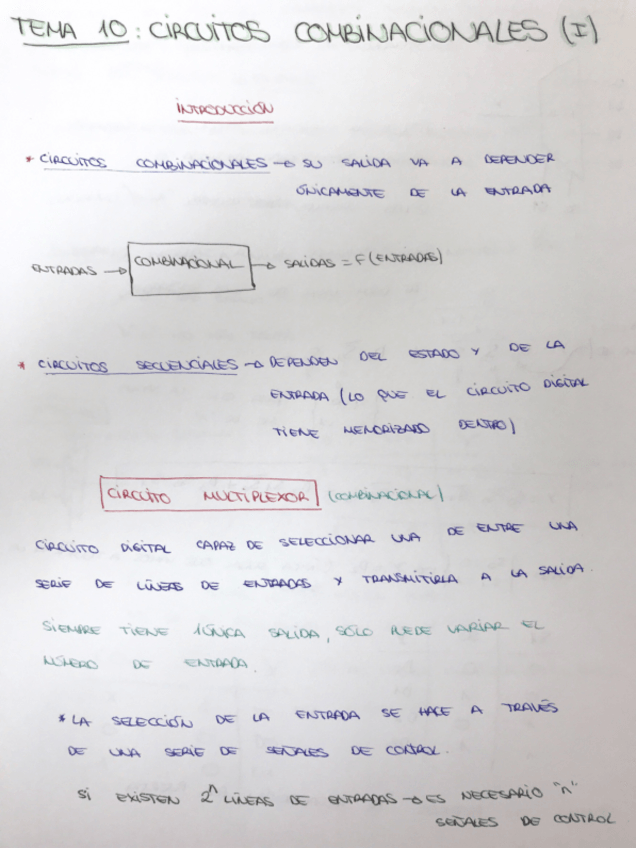 TEMA 10: CIRCUITOS COMBINACIONALES (I)
INTRODUCCIÓN
* CIRCUITOS COMBINACIONALES → SU SALIDA VA A DEPENDER
ÚNICAMENTE DE LA ENTRADA
ENTRADAS → COMBINACIONAL → SALIDAS = F(ENTRADAS)
* CIRCUITOS SECUENCIALES → DEPENDEN DEL ESTADO Y DE LA
ENTRADA (LO QUE EL CIRCUITO DIGITAL
TIENE MEMORIZADO DENTRO)
CIRCUITO MULTIPLEXOR (COMBINACIONAL)
CIRCUITO DIGITAL CAPAZ DE SELECCIONAR UNA DE ENTRE UNA
SERIE DE LÍNEAS DE ENTRADAS Y TRANSMITIRLA A LA SALIDA.
SIEMPRE TIENE 1 ÚNICA SALIDA, SÓLO PUEDE VARIAR EL
NÚMERO DE ENTRADA.
* LA SELECCIÓN DE LA ENTRADA SE HACE A TRAVÉS
DE UNA SERIE DE SEÑALES DE CONTROL.
SI EXISTEN 2^n LÍNEAS DE ENTRADAS → ES NECESARIO "n"
SEÑALES DE CONTROL